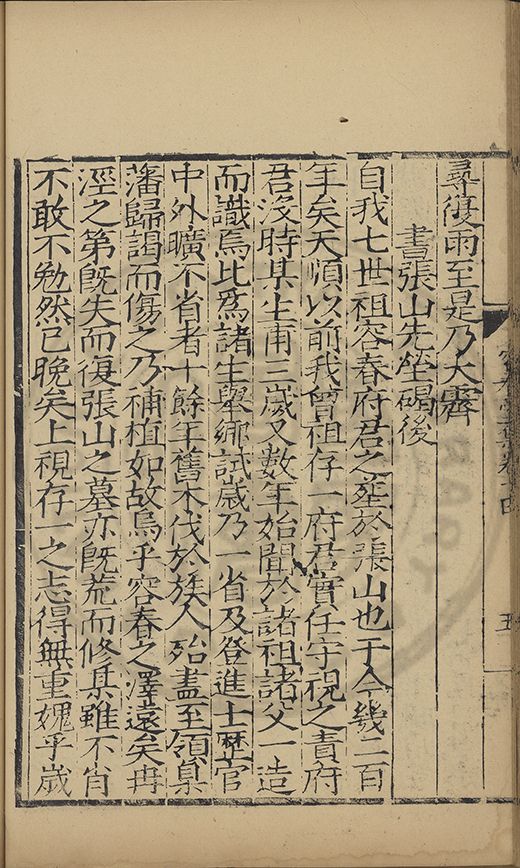 尋復雨至是乃大霽
書張山先塋碣後
自我七世祖容春府君之塟於張山也于今幾二百
年矣天順以前我曾祖存一府君實任守視之責府
君沒時某生甫三歲又數年始聞於諸祖諸父一造
而識焉比爲諸生舉鄉試歲乃一省及登進士歷官
中外曠不省者十餘年舊木伐於族人殆盡至領臬
藩歸謁而傷之乃補植如故烏乎容春之澤遠矣冉
涇之第既失而復張山之墓亦既荒而修某雖不肖
不敢不勉然已晚矣上視存一之志得無重媿乎歲
五